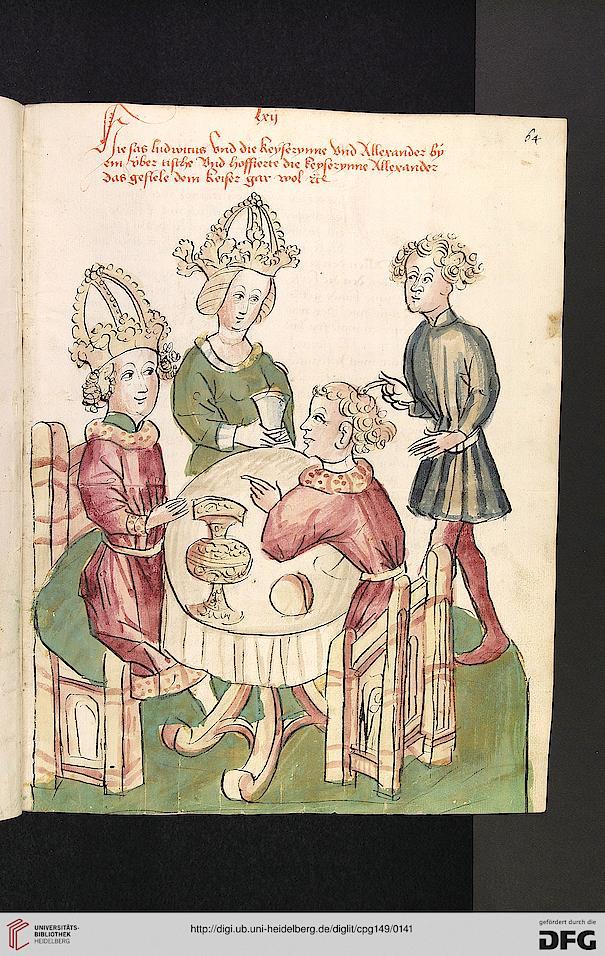 lxij
64
Hie sas ludwicus vnd die keyserynne vnd Allexander by
ein / vber tische vnd hoffierte die keyserynne Allexander
das gefiele dem keiser gar wol etc
UNIVERSITÄTS-
BIBLIOTHEK
HEIDELBERG
http://digi.ub.uni-heidelberg.de/diglit/cpg149/0141
gefördert durch die
DFG